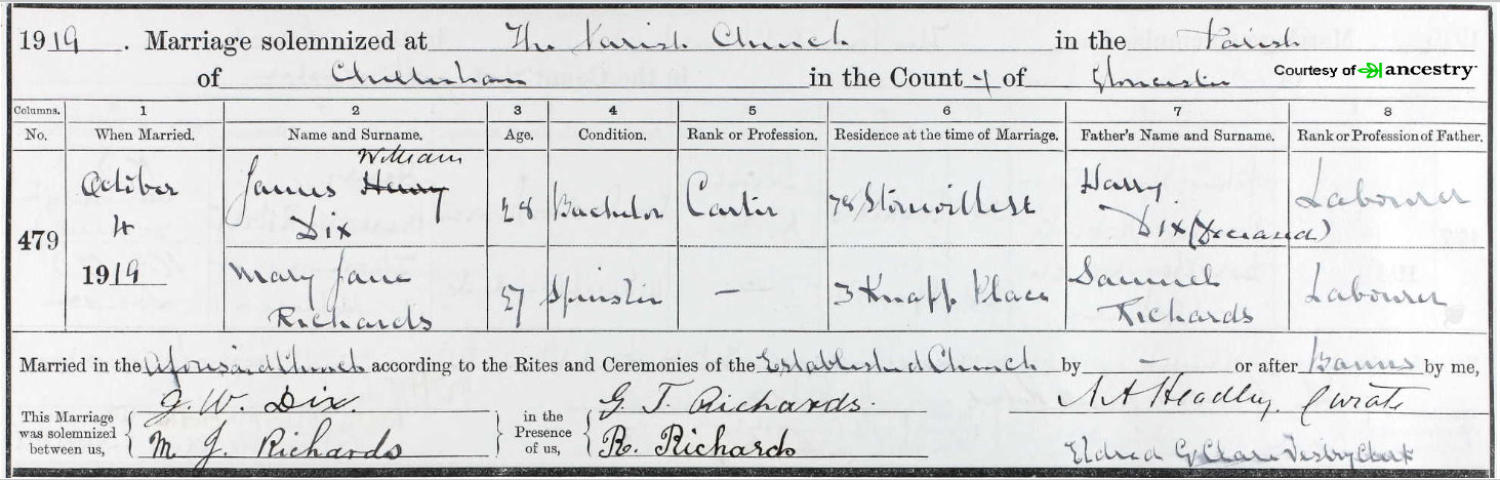 1919. Marriage solemnized at The Parish Church in the Parish
of Cheltenham in the County of Gloucester Courtesy of ancestry
Columns. 1 2 3 4 5 6 7 8
No. When Married. Name and Surname. Age. Condition. Rank or Profession. Residence at the time of Marriage. Father's Name and Surname. Rank or Profession of Father.
William
October James Henry 28 Bachelor Carter 78 Stoneville St Harry Labourer
4 Dix Dix (Deceased)
479
1919 Mary Jane 27 Spinster — 3 Knapp Place Samuel Labourer
Richards Richards
Married in the aforesaid Church according to the Rites and Ceremonies of the Established Church by — or after Banns by me,
This Marriage was solemnized between us, J. W. Dix. in the Presence of us, G. T. Richards. Headley, Curate
M J. Richards R. Richards Eldred G Vestry Clerk